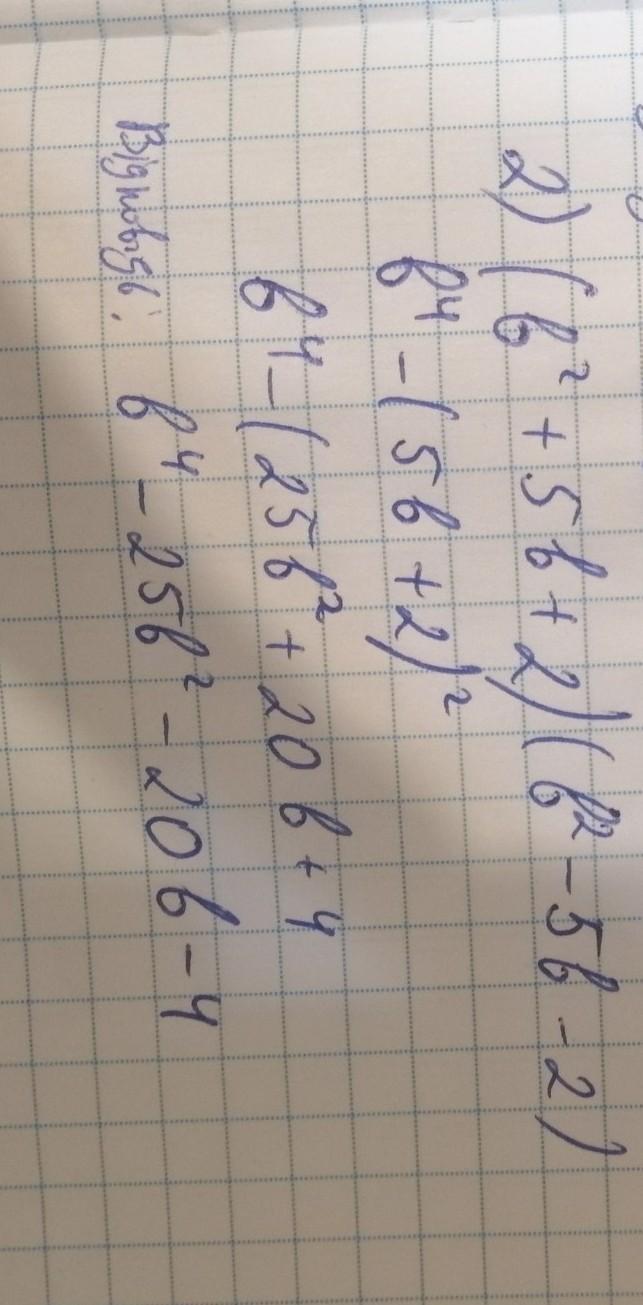 2) (b² + 5b + 2)(b² - 5b - 2)
b⁴ - (5b + 2)²
b⁴ - (25b² + 20b + 4
Відповідь: b⁴ - 25b² - 20b - 4